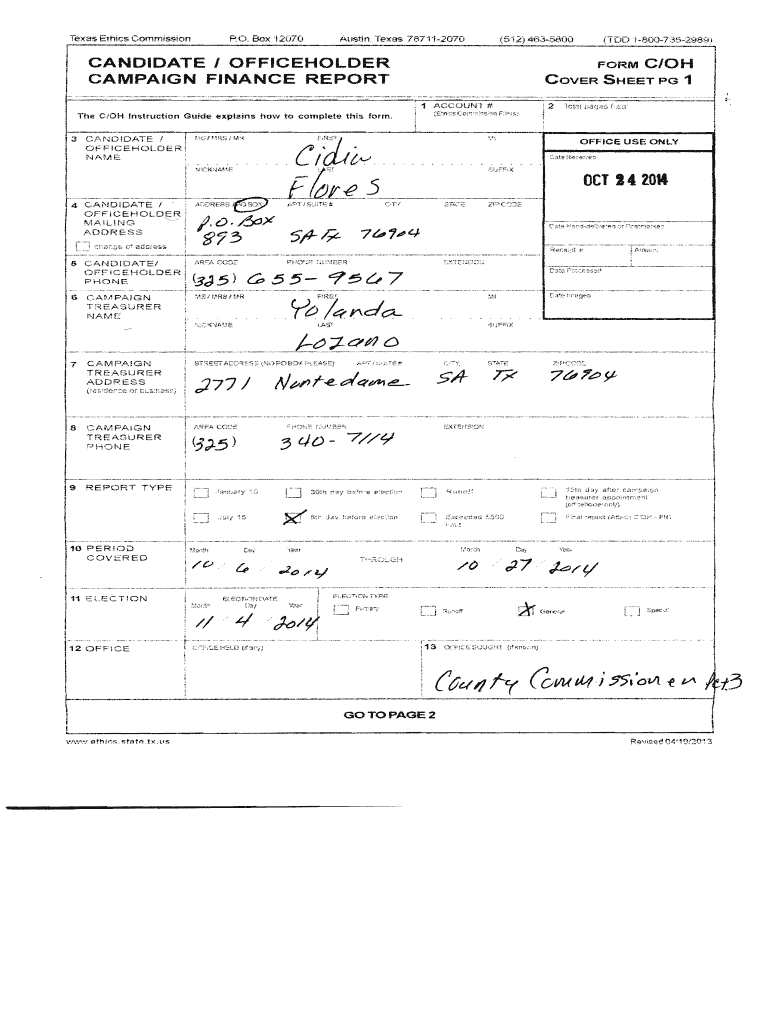 Texas Ethics Commission P.O. Box 12070 Austin, Texas 78711-2070 (512) 463-5800 (TDD 1-800-735-2989)
CANDIDATE / OFFICEHOLDER
CAMPAIGN FINANCE REPORT
FORM C/OH
COVER SHEET PG 1
The C/OH Instruction Guide explains how to complete this form.
1 ACCOUNT #
(Ethics Commission Filers)
2 Total pages filed
3 CANDIDATE / OFFICEHOLDER NAME
MS / MRS / MR FIRST MI
Cidia
NICKNAME LAST SUFFIX
Flores
OFFICE USE ONLY
Date Received
OCT 24 2014
Date Hand-delivered or Postmarked
Receipt # Amount
Date Processed
Date Imaged
4 CANDIDATE / OFFICEHOLDER MAILING ADDRESS
change of address
ADDRESS / PO BOX APT / SUITE # CITY STATE ZIP CODE
P.O. Box
893 SA Tx 76904
5 CANDIDATE/ OFFICEHOLDER PHONE
AREA CODE PHONE NUMBER EXTENSION
(325) 655-9567
6 CAMPAIGN TREASURER NAME
MS / MRS / MR FIRST MI
Yolanda
NICKNAME LAST SUFFIX
Lozano
7 CAMPAIGN TREASURER ADDRESS
(residence or business)
STREET ADDRESS (NO PO BOX PLEASE) APT / SUITE # CITY STATE ZIP CODE
2771 SA TX 76904
8 CAMPAIGN TREASURER PHONE
AREA CODE PHONE NUMBER EXTENSION
(325) 340-7114
9 REPORT TYPE
January 15 30th day before election Runoff 15th day after campaign treasurer appointment (officeholder only)
July 15 8th day before election Exceeded $500 limit Final report (Attach C/OH - FR)
10 PERIOD COVERED
Month Day Year THROUGH Month Day Year
10 6 2014 10 27 2014
11 ELECTION
ELECTION DATE
Month Day Year
11 4 2014
ELECTION TYPE
Primary Runoff General Special
12 OFFICE
OFFICE HELD (if any)
13 OFFICE SOUGHT (if known)
County Commissioner Pct3
GO TO PAGE 2
www.ethics.state.tx.us Revised 04/19/2013